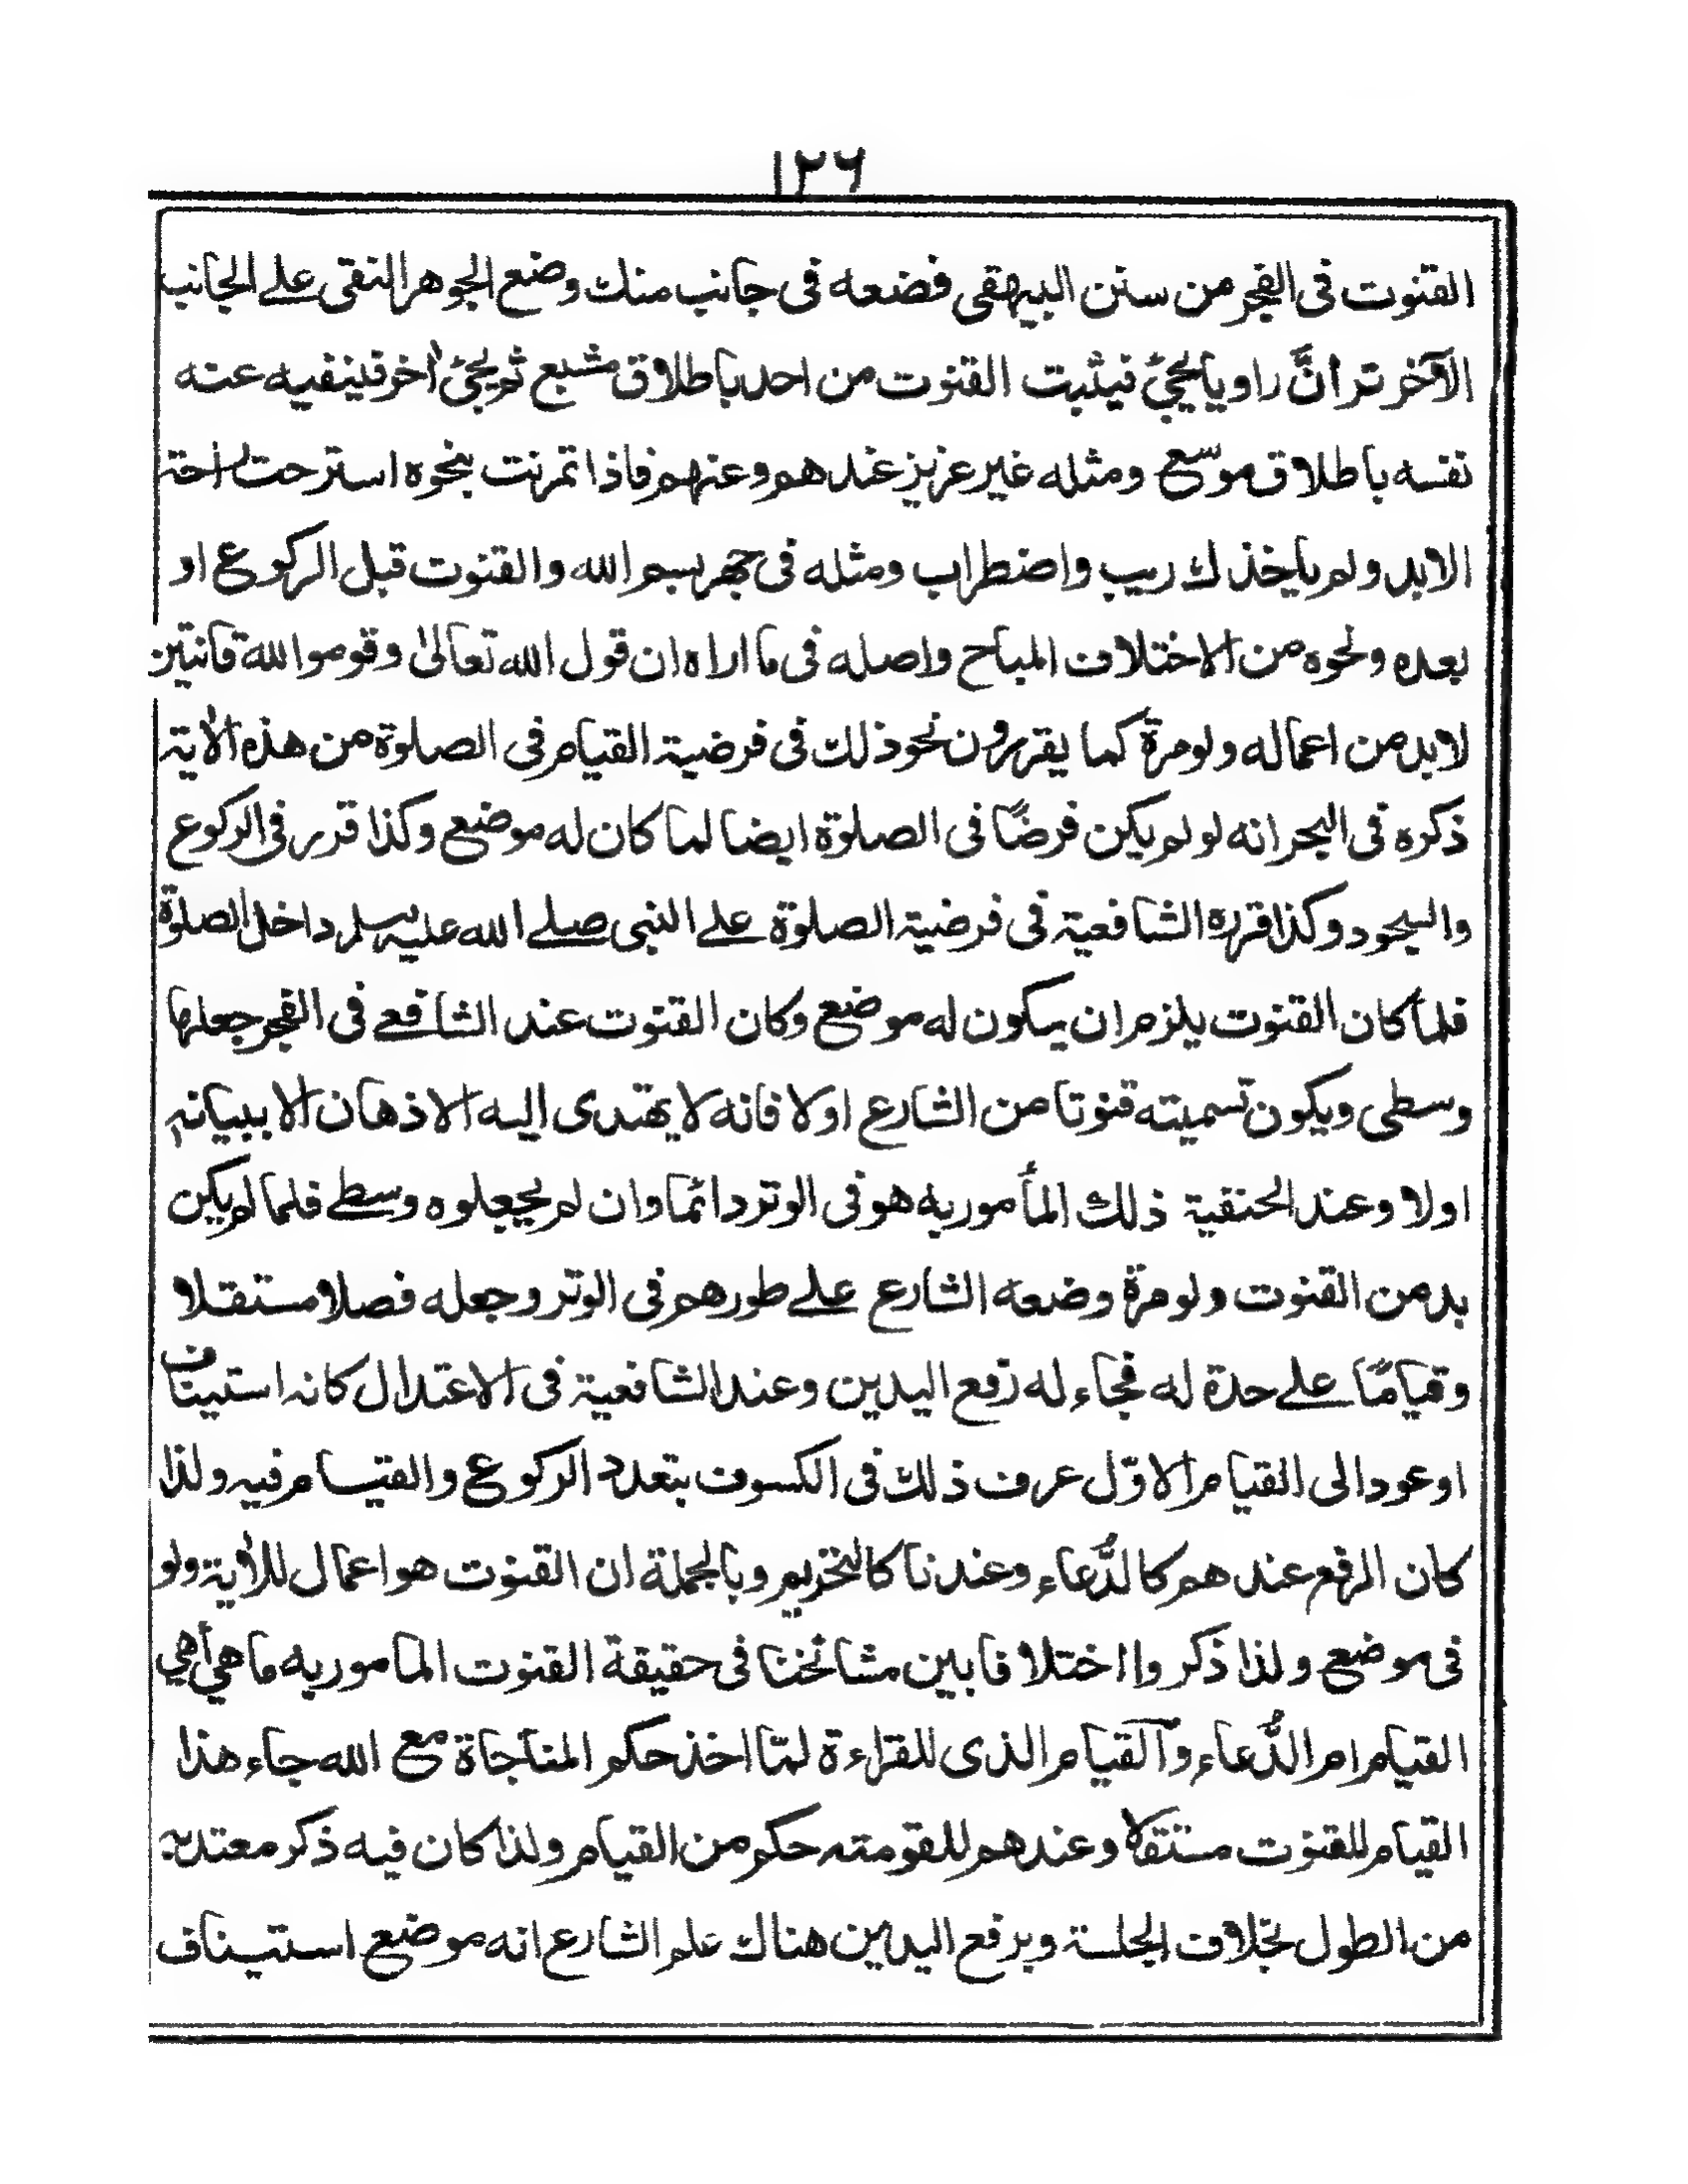 ١٢٦
القنوت فى الفجر من سنن البيهقى فضعه فى جانب منك وضع الجوهر النقى على الجانب
الآخر تر أنَّ راويا يجيئ فيثبت القنوت من احد باطلاق مشبع ثم يجئ اٰخر فينفيه عنه
نفسه باطلاق موسّع ومثله غير عزيز عندهم وعنهم فاذا تمرنت بنحوه استرحت راحة
الابد ولم ياخذك ريب واضطراب ومثله فى جهر بسم الله والقنوت قبل الركوع او
بعده ونحوه من الاختلاف المباح واصله فى ما اراه ان قول الله تعالىٰ وقوموا لله قانتين
لابد من اعماله ولو مرة كما يقررون نحو ذلك فى فرضية القيام فى الصلوة من هذه الاٰية
ذكره فى البحر انه لو لم يكن فرضًا فى الصلوة ايضا لما كان له موضع وكذا قرر فى الركوع
والسجود وكذا قرره الشافعية فى فرضية الصلوة على النبى صلے الله عليه وسلم داخل الصلوة
فلما كان القنوت يلزم ان يكون له موضع وكان القنوت عند الشافعے فى الفجر جعلها
وسطى ويكون تسميته قنوتا من الشارع اولا فانه لا يهتدى اليه الاذهان الا ببيانه
اولا وعند الحنفية ذلك المأمور به هو فى الوتر دائما وان لم يجعلوه وسطے فلما لم يكن
بد من القنوت ولو مرة وضعه الشارع علے طورهم فى الوتر وجعله فصلا مستقلا
وقيامًا علے حدة له فجاء له رفع اليدين وعند الشافعية فى الاعتدال كانه استيناف
او عود الى القيام الاوّل عرف ذلك فى الكسوف بتعدد الركوع والقيام فيه ولذا
كان الرفع عندهم كالدُّعاء وعندنا كالتحريم وبالجملة ان القنوت هو اعمال للاٰية ولو
فى موضع ولذا ذكروا اختلافا بين مشائخنا فى حقيقة القنوت المامور به ما هي أهي
القيام ام الدُّعاء وآلقيام الذى للقراءة لمّا اخذ حكم المناجاة مع الله جاء هذا
القيام للقنوت مستقلا وعندهم للقومته حكم من القيام ولذا كان فيه ذكر معتد به
من الطول بخلاف الجلسة وبرفع اليدين هناك علم الشارع انه موضع استيناف